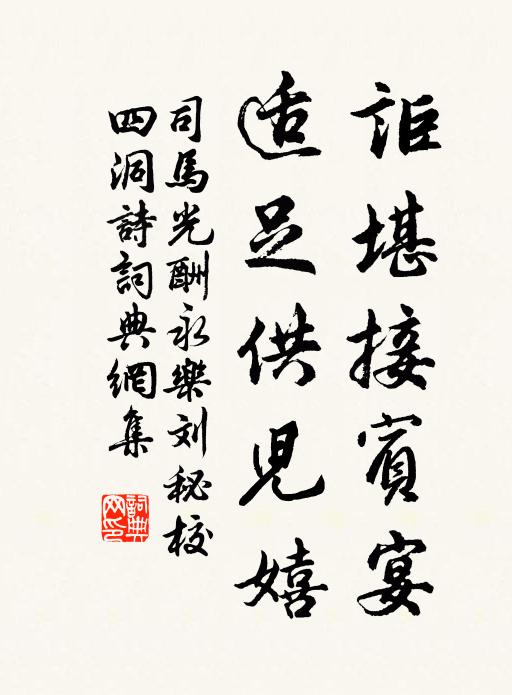 詎堪接賓宴
适足供兒嬉
司馬光酬永樂刘秘校
四洞詩詞典網集
詞典網印